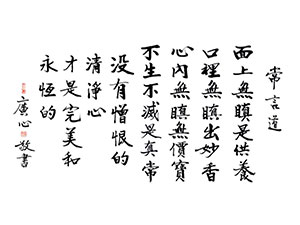 常言道
面上無瞋是供養
口裡無瞋出妙香
心內無瞋無價寶
不生不滅是真常
沒有憎恨的
清淨心
才是完美和
永恆的
廣心敬書